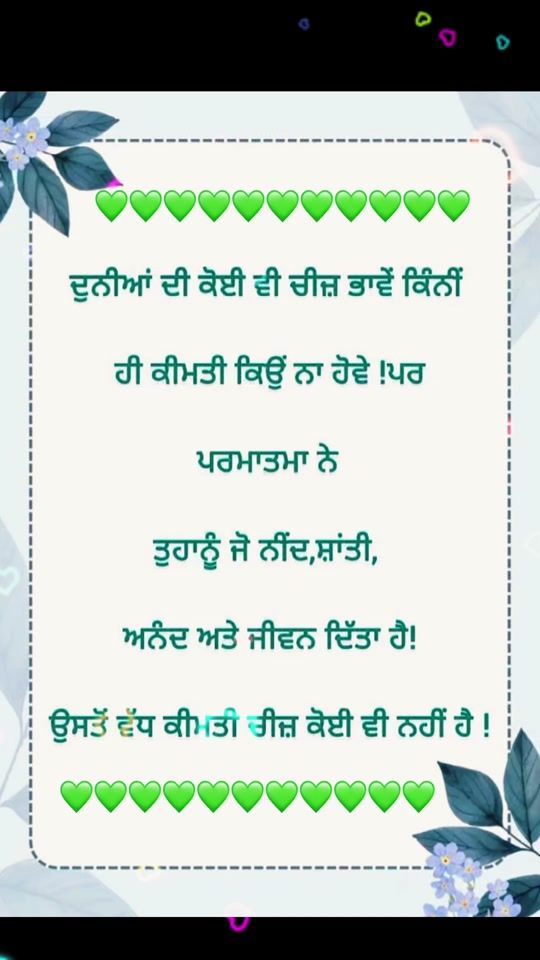 💚💚💚💚💚💚💚💚💚💚💚
ਦੁਨੀਆਂ ਦੀ ਕੋਈ ਵੀ ਚੀਜ਼ ਭਾਵੇਂ ਕਿੰਨੀਂ
ਹੀ ਕੀਮਤੀ ਕਿਉਂ ਨਾ ਹੋਵੇ !ਪਰ
ਪਰਮਾਤਮਾ ਨੇ
ਤੁਹਾਨੂੰ ਜੋ ਨੀਂਦ,ਸ਼ਾਂਤੀ,
ਅਨੰਦ ਅਤੇ ਜੀਵਨ ਦਿੱਤਾ ਹੈ!
ਉਸਤੋਂ ਵੱਧ ਕੀਮਤੀ ਚੀਜ਼ ਕੋਈ ਵੀ ਨਹੀਂ ਹੈ !
💚💚💚💚💚💚💚💚💚💚💚